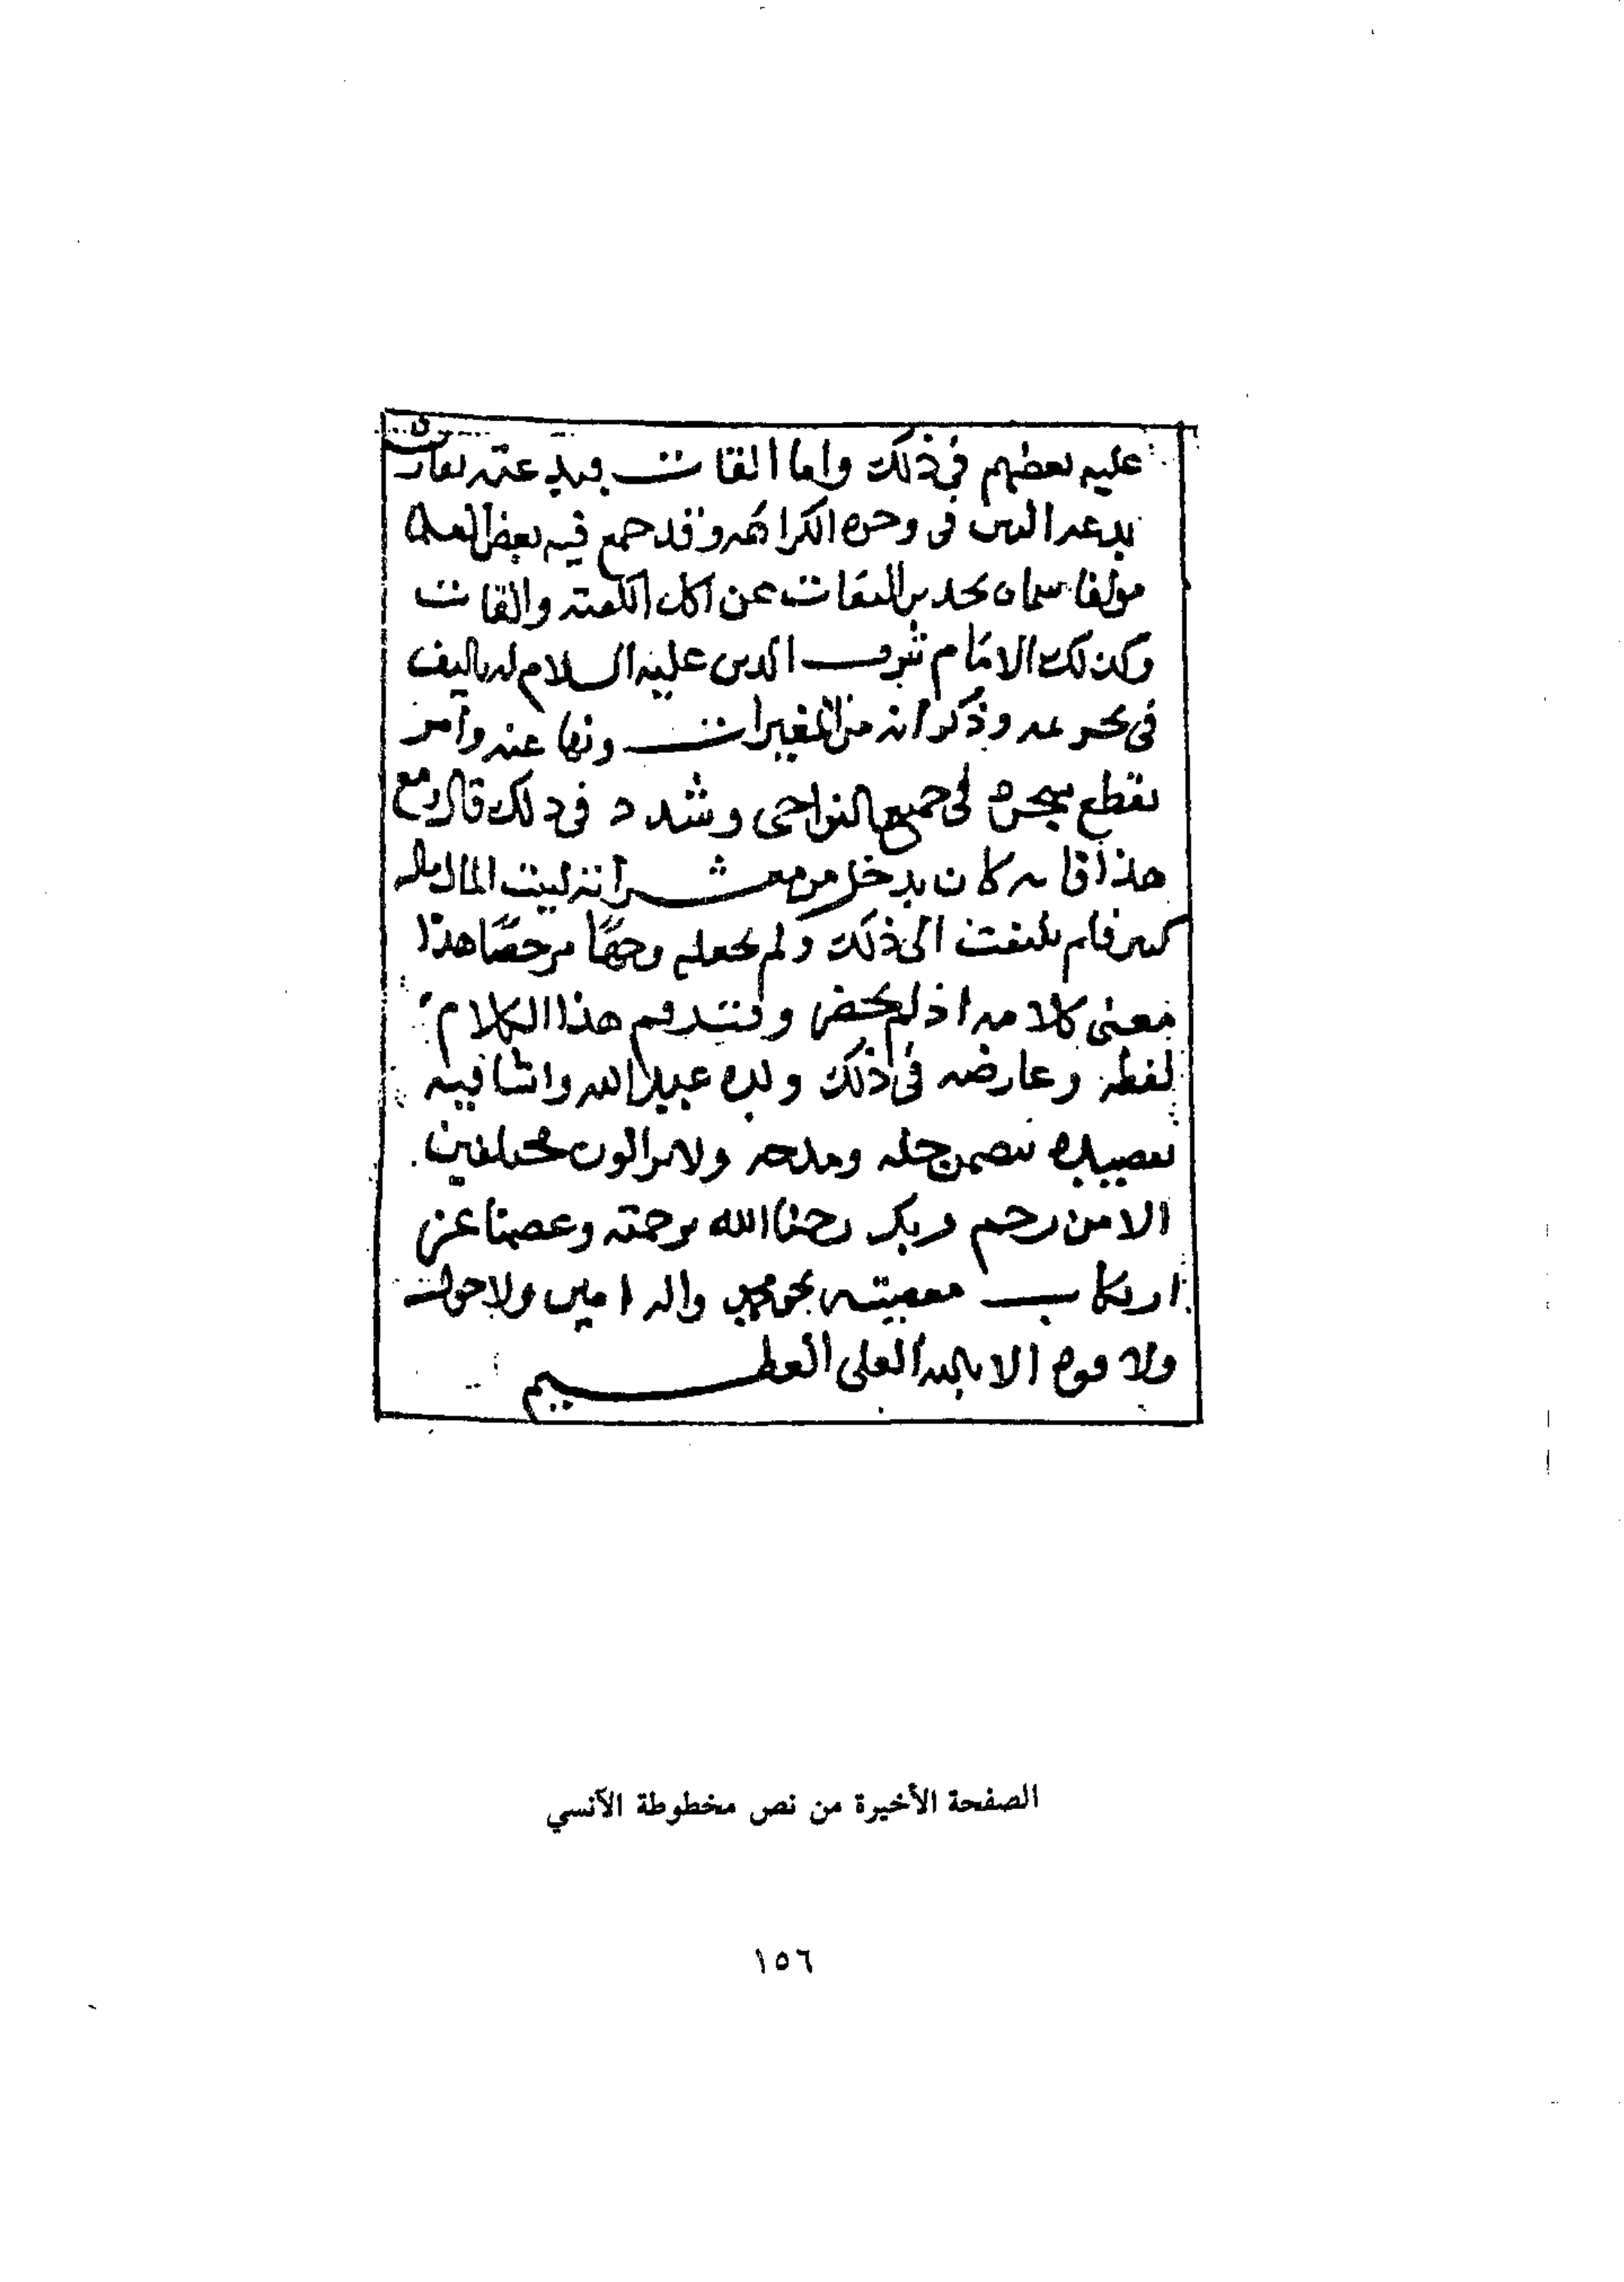 عليه بعضهم في ذلك واما القات فبدعته تقارن
بدعة التتن في وجوه الكراهه وقد جمع فيه بعض العلما
مولفا سماه تحذير الثقات عن اكل الكفته والقات
وكذلك الامام شرف الدين عليه السلام له تاليف
في تحريمه وذكر انه من المغيرات ونها عنه وامر
بقطع شجره في جميع النواحي وشدد في ذلك قال ومع
هذا فانه كان يدخل من معشراته لبيت المال مال
كثير فلم يلتفت الى ذلك ولم يجعله وجها مرخصا هذا
معنى كلامه اذ لم يحضرني هذا الكلام
لفظه وعارضه في ذلك ولده عبدالله وانشا فيه
قصيده تتضمن حله ومدحه ولا يزالون مختلفين
الا من رحم ربك رحمنا الله برحمته وعصمنا عن
ارتكاب معصيته بحق محمد واله امين ولا حول
ولا قوه الا بالله العلي العظيم
الصفحة الأخيرة من نص مخطوطة الآنسي
١٥٦